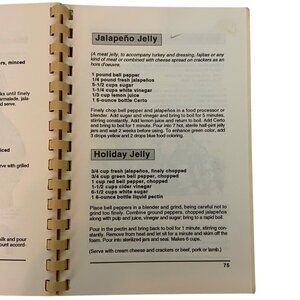 ers, minced
ks until finely
armalade, jala-
nd serve.
erve with grilled
ilk and pour
ount accord-
Jalapeño Jelly
(A meat jelly, to accompany turkey and dressing, fajitas or any
kind of meat or combined with cheese spread on crackers as an
hors d'oeuvre.
1 pound bell pepper
1/4 pound fresh jalapeños
5-1/2 cups sugar
1-1/4 cups white vinegar
1/3 cup lemon juice
1 6-ounce bottle Certo
Finely chop bell pepper and jalapeños in a food processor or
blender. Add sugar and vinegar and bring to boil for 5 minutes,
stirring constantly. Add lemon juice and return to boil. Add Certo
and bring to boil for 1 minute. Pour into 7 hot, sterile half-pint jelly
jars and wait 2 weeks before using. To enhance green color, add
3 drops yellow and 2 drops blue food coloring.
Holiday Jelly
3/4 cup fresh jalapeños, finely chopped
3/4 cup green bell pepper, chopped
1 cup red bell pepper, chopped
1-1/2 cups cider vinegar
6-1/2 cups white sugar
1 6-ounce bottle liquid pectin
Place bell peppers in a blender and grind, being careful not to
grind too finely. Combine ground peppers, chopped jalapeños
along with pulp and juice, vinegar and sugar; bring to a rapid boil.
Pour in the pectin and bring back to boil for 1 minute, stirring con-
stantly. Remove from heat and let sit for a minute and skim off the
foam. Pour into sterilized jars and seal. Makes 6 cups.
(Serve with cream cheese and crackers or beef, pork or lamb.)
75